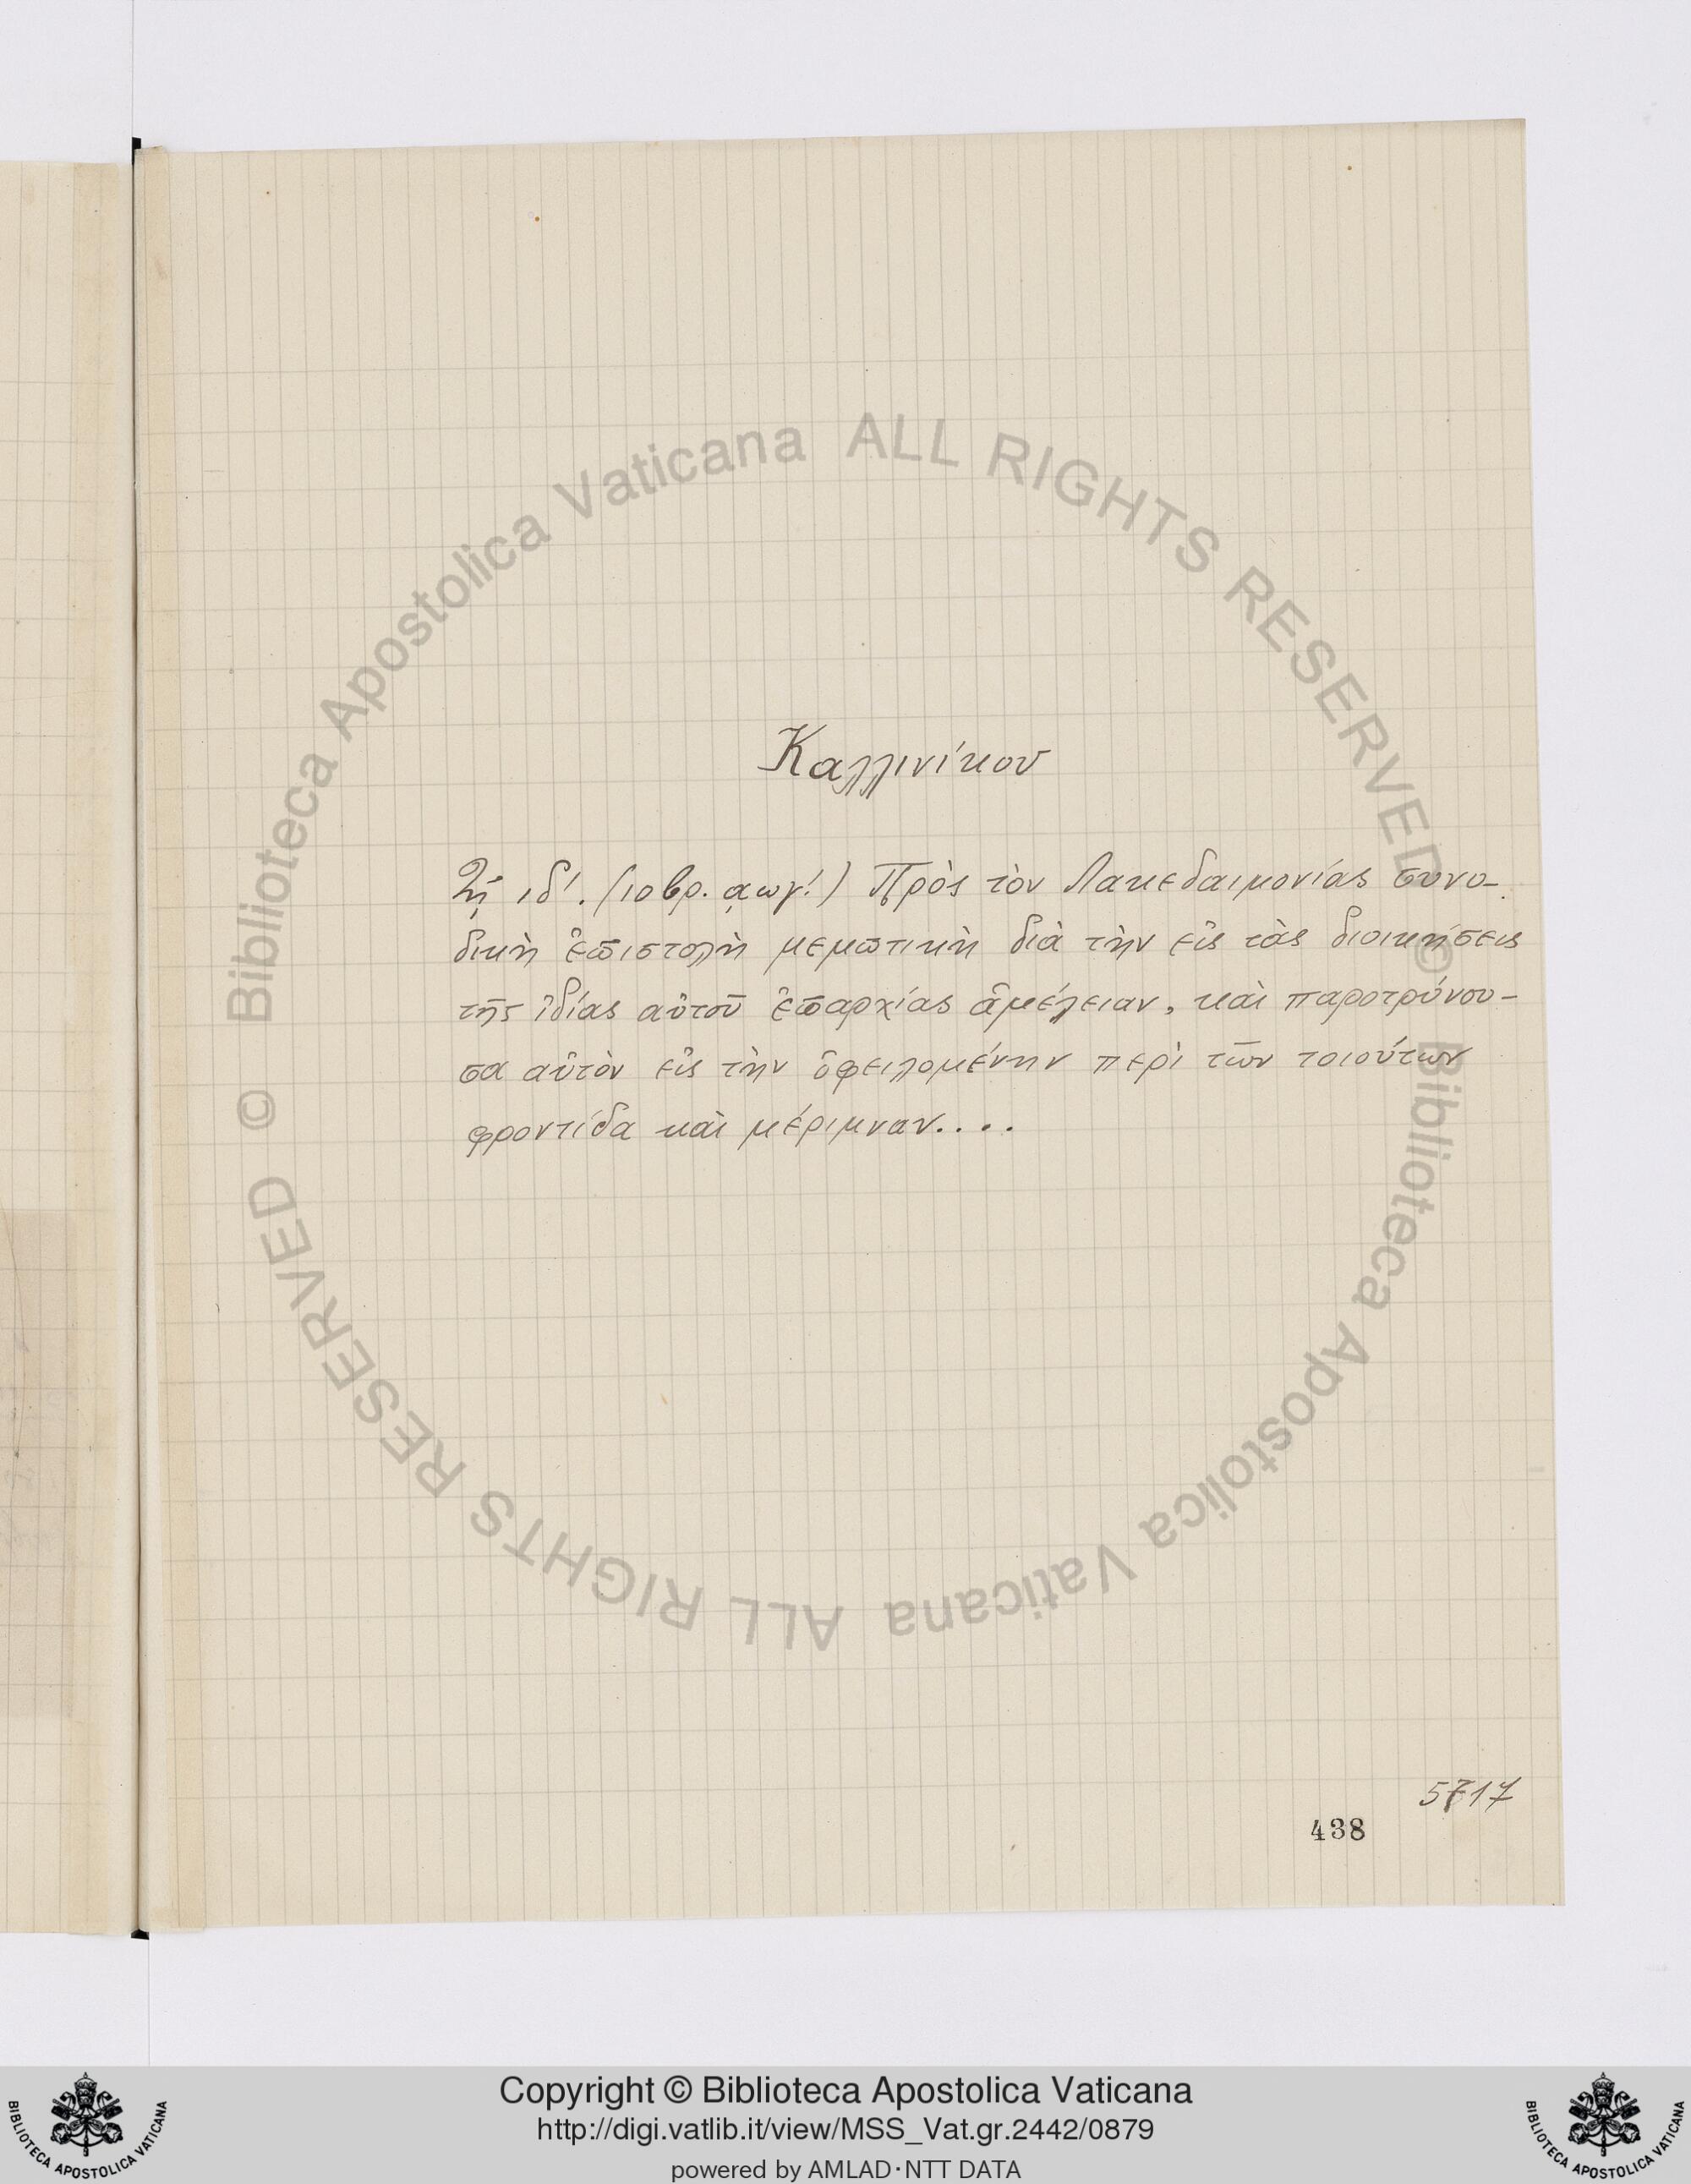 Καλλινίκου
ιδ'. (10βρ. ͵αωγ'.) Πρὸς τὸν Λακεδαιμονίας συνο-
δικὴ ἐπιστολὴ μεμπτικὴ διὰ τὴν εἰς τὰς διοικήσεις
τῆς ἰδίας αὐτοῦ ἐπαρχίας ἀμέλειαν, καὶ παροτρύνου-
σα αὐτὸν εἰς τὴν ὀφειλομένην περὶ τῶν τοιούτων
φροντίδα καὶ μέριμναν....
5717
438
© Biblioteca Apostolica Vaticana ALL RIGHTS RESERVED
© Biblioteca Apostolica Vaticana ALL RIGHTS RESERVED
Copyright © Biblioteca Apostolica Vaticana
http://digi.vatlib.it/view/MSS_Vat.gr.2442/0879
powered by AMLAD·NTT DATA
BIBLIOTECA APOSTOLICA VATICANA
BIBLIOTECA APOSTOLICA VATICANA